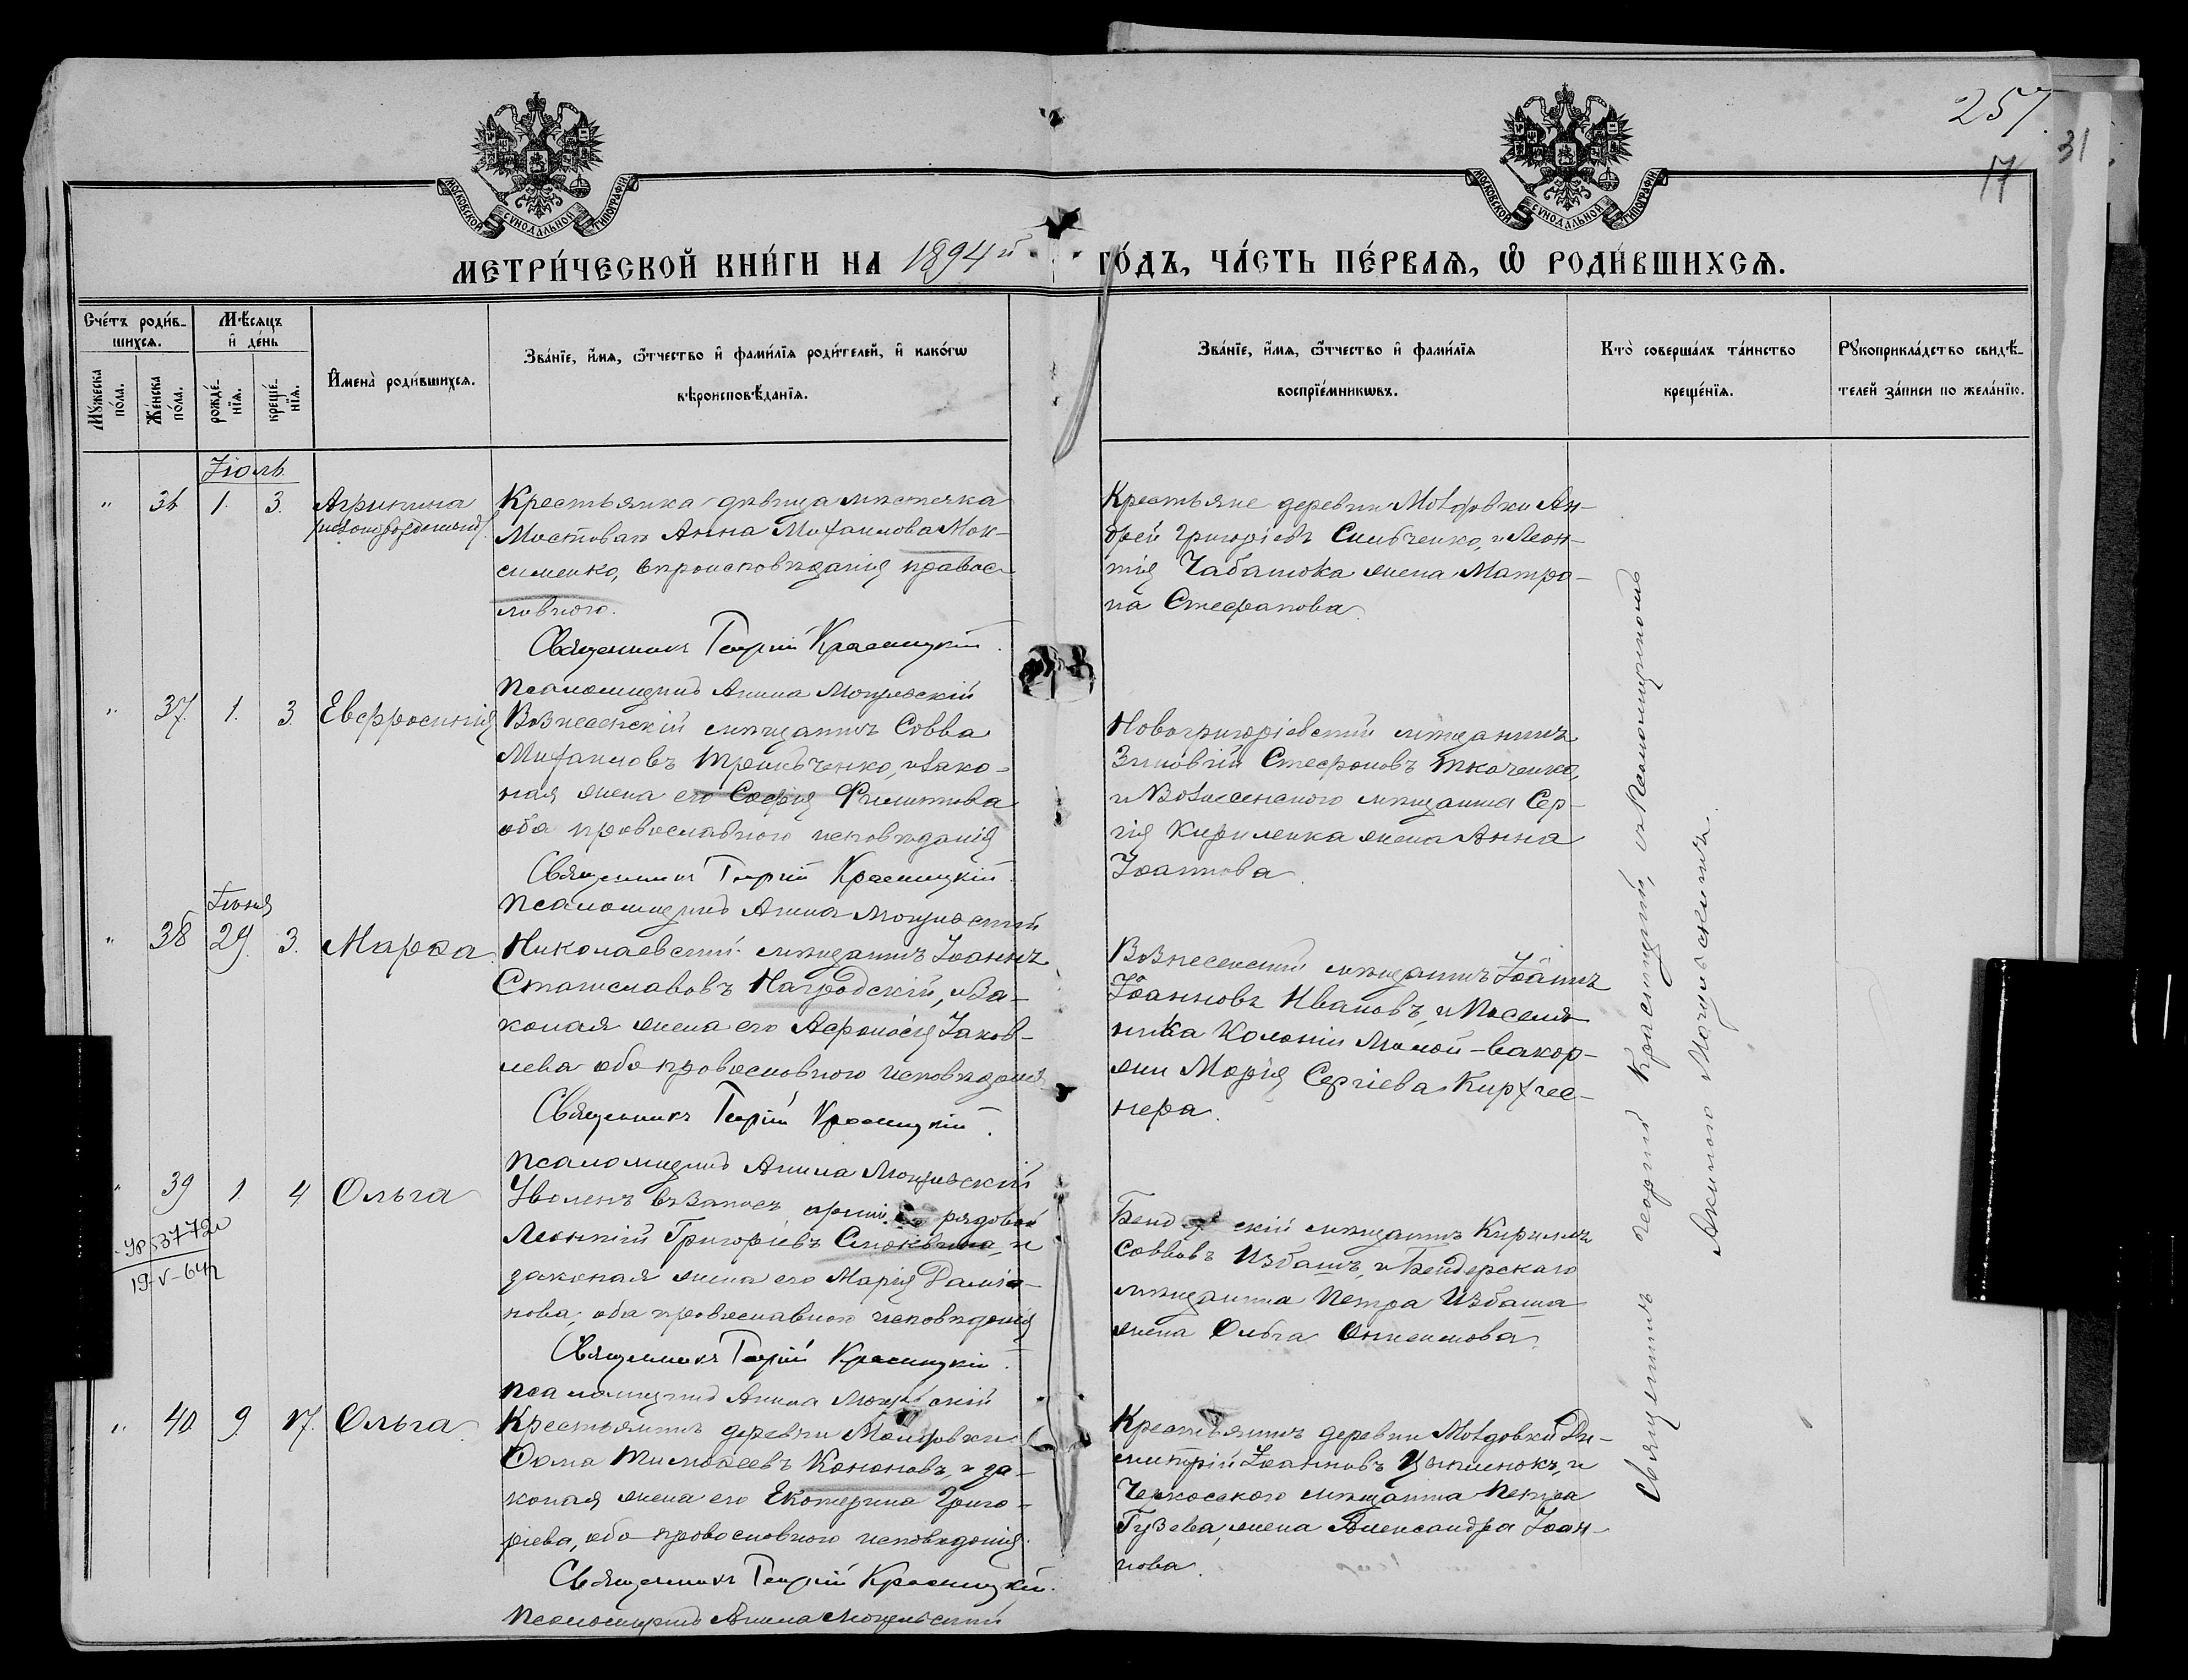 257.
31
17
МОСКОВСКОЙ СѴНОДАЛЬНОЙ ТИПОГРАФІИ
МОСКОВСКОЙ СѴНОДАЛЬНОЙ ТИПОГРАФІИ
МЕТРИ́ЧЕСКОЙ КНИ́ГИ НА 1894й ГО́ДЪ, ЧА́СТЬ ПЕ́РВАѦ, Ѡ҆ РОДИ́ВШИХСѦ.
Счётъ роди́в-
шихсѧ.
Мꙋ́жеска по́ла.
Же́нска по́ла.
Мѣ́сѧцъ
и҆ де́нь
рожде́-
нїѧ.
креще́-
нїѧ.
И҆мена̀ роди́вшихсѧ.
Зва́нїе, и҆́мѧ, ѻ҆́тчество и҆ фами́лїѧ роди́телей, и҆ како́гѡ
вѣроисповѣ́данїѧ.
Зва́нїе, и҆́мѧ, ѻ҆́тчество и҆ фами́лїѧ
воспрїе́мникѡвъ.
Кто̀ соверша́лъ та́инство
креще́нїѧ.
Рꙋкоприкла́дство свидѣ́-
телей за́писи по жела́нїю.
Іюль
" 36 1. 3. Агрипина
(незаконорожденная)
Крестьянка дѣвица мѣстечка
Мостовая Анна Михаилова Мак-
сименко, вѣроисповѣданія правос-
лавнаго.
Священникъ Георгій Красницкій.
Псаломщикъ Акима Могилевскій
Крестьяне деревни Молдовки Ан-
дрей Григоріевъ Сильченко, и Леон-
тія Чабанюка жена Матро-
на Стефанова.
" 37. 1. 3. Евфросинія
Вознесенскій мѣщанинъ Совва
Михаиловъ Трельченко, и зако-
ная жена его Софія Филиппова
оба православнаго исповѣданія
Священникъ Георгій Красницкій.
Псаломщикъ Акима Могилевскій
Новогригоріевскій мѣщанинъ
Зиновій Стефановъ Ткаченко,
и Вознесенскаго мѣщанина Сер-
гія Кириленка жена Анна
Іоаннова.
Іюня
" 38 29. 3. Марѳа.
Николаевскій мѣщанинъ Іоаннъ
Станиславовъ Нагродскій, и за-
коная жена его Афонасія Іаков-
лева оба православнаго исповѣданія
Священникъ Георгій Красницкій.
Псаломщикъ Акима Могилевскій
Вознесенскій мѣщанинъ Іоаннъ
Іоанновъ Ивановъ, и Поселя-
ника Колоніи Малой-вакар-
жи Марія Сергіева Кирхгес-
нера.
" 39 1. 4 Ольга
19-V-64г
Уволенъ въ запасъ арміи рядовой
Леонтій Григоріевъ и
законая жена его Марія Даміа-
нова, оба православнаго исповѣданія
Священникъ Георгій Красницкій.
Псаломщикъ Акима Могилевскій
Бендерскій мѣщанинъ Кириллъ
Соввовъ Избашъ, и Бендерскаго
мѣщанина Петра Избаша
жена Ольга Онисимова.
" 40. 9. 17. Ольга.
Крестьянинъ деревни Молдовки
Ѳома Тимоѳеевъ Кононовъ, и за-
коная жена его Екатерина Григо-
ріева, оба православнаго исповѣданія.
Священникъ Георгій Красницкій.
Псаломщикъ Акима Могилевскій
Крестьянинъ деревни Молдовки Ди-
митрій Іоанновъ и
Черкасскаго мѣщанина Петра
Гузева, жена Александра Іоан-
нова.
Священникъ Георгій Красницкій, съ Псаломщикомъ
Акимою Могилевскимъ.